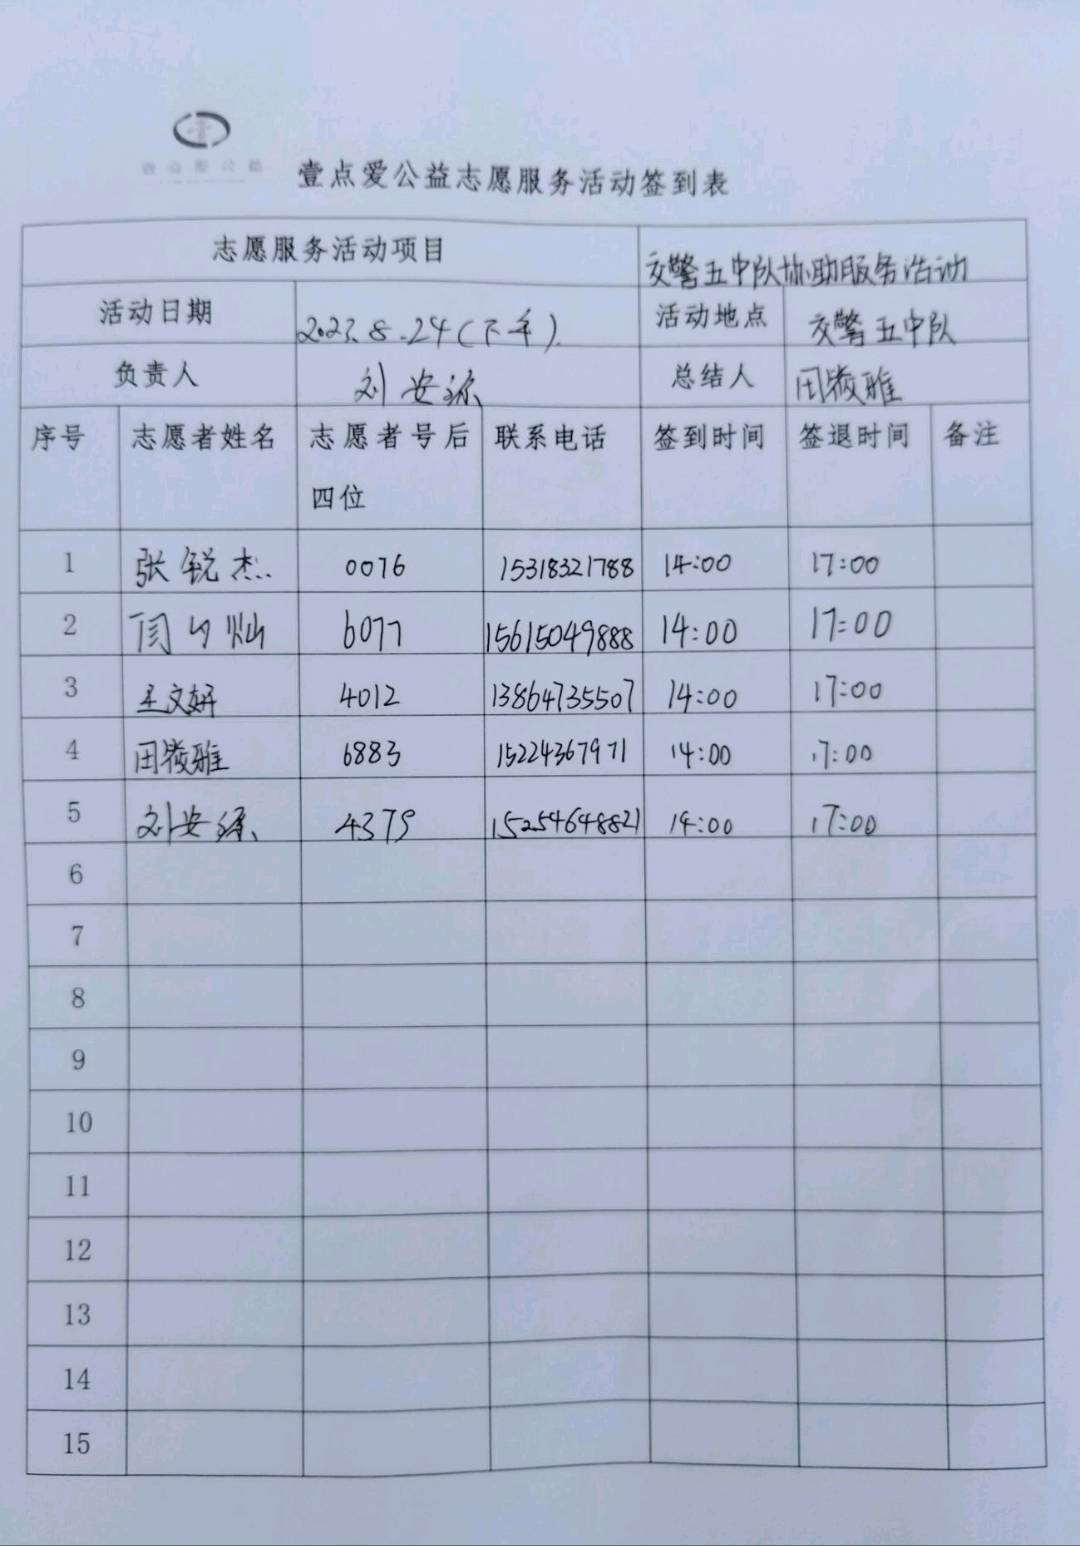 壹点爱公益志愿服务活动签到表
志愿服务活动项目 交警五中队协助服务活动
活动日期 2023.8.24(下午) 活动地点 交警五中队
负责人 刘安源 总结人 田筱雅
序号 志愿者姓名 志愿者号后四位 联系电话 签到时间 签退时间 备注
1 张锐杰 0076 15318321788 14:00 17:00
2 闫 灿 6077 15615049888 14:00 17:00
3 王文妍 4012 13864735507 14:00 17:00
4 田筱雅 6883 15224367971 14:00 17:00
5 刘安源 4379 15254648821 14:00 17:00
6
7
8
9
10
11
12
13
14
15